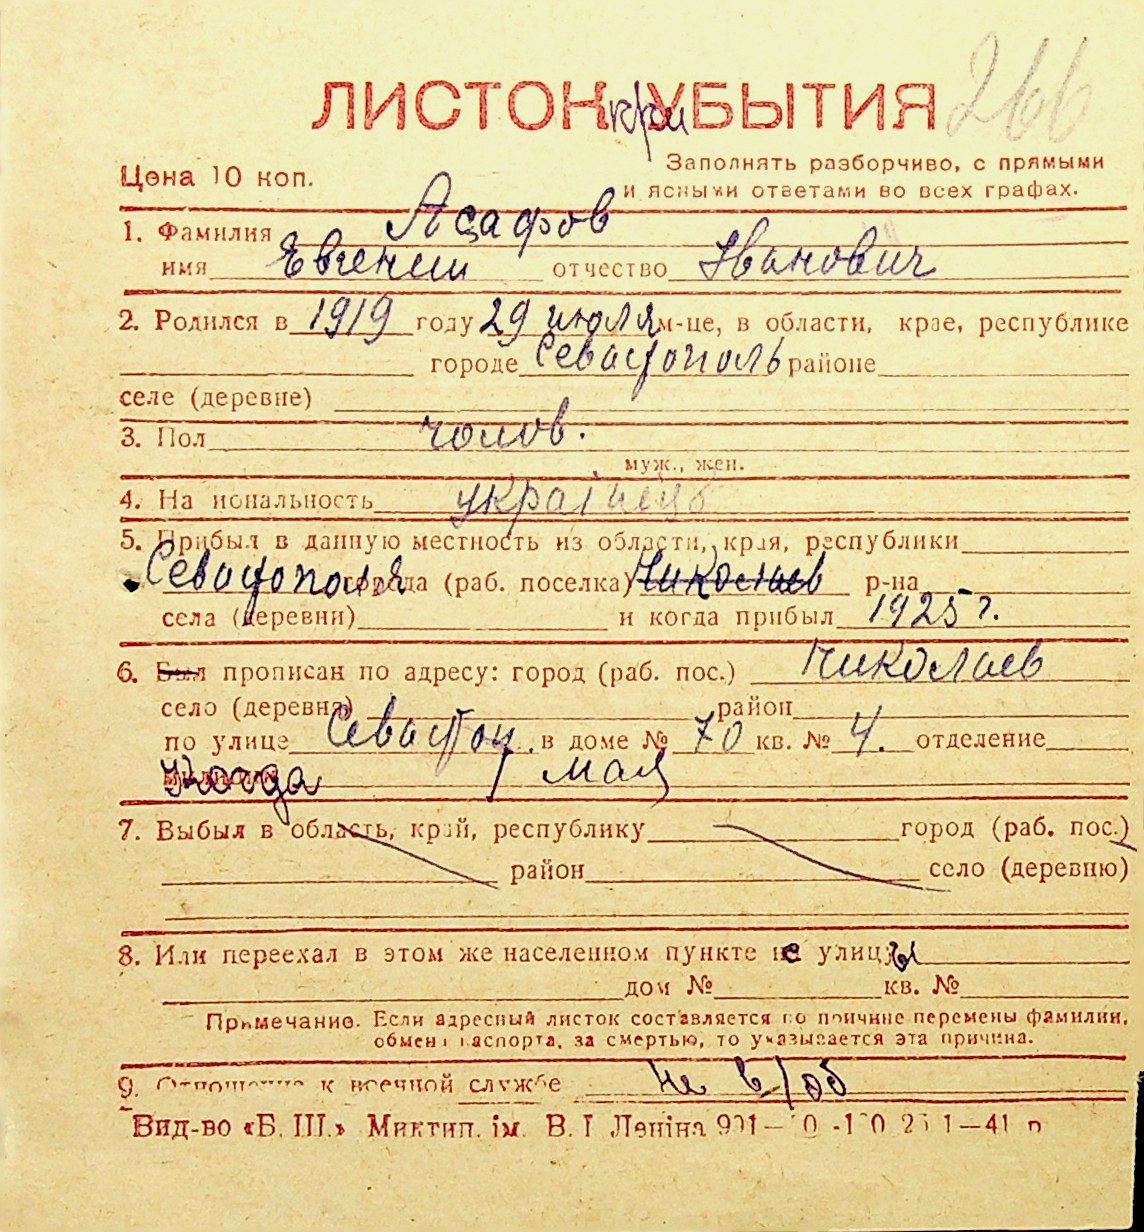 266
ЛИСТОК при УБЫТИЯ
Цена 10 коп.
Заполнять разборчиво, с прямыми
и ясными ответами во всех графах.
1. Фамилия Асафов
имя Евгений отчество Иванович
2. Родился в 1919 году 29 июля м-це, в области, крае, республике
городе Севастополь районе
селе (деревне)
3. Пол чолов.
муж., жен.
4. Национальность українець
5. Прибыл в данную местность из области, края, республики
Севастополя города (раб. поселка) Николаев р-на
села (деревни) и когда прибыл 1925 г.
6. Был прописан по адресу: город (раб. пос.) Николаев
село (деревня) район
по улице Севастоп. в доме № 70 кв. № 4. отделение
Когда 7 мая
7. Выбыл в область, край, республику город (раб. пос.)
район село (деревню)
8. Или переехал в этом же населенном пункте с улицы
дом № кв. №
Примечание. Если адресный листок составляется по причине перемены фамилии,
обмена паспорта, за смертью, то указывается эта причина.
9. Отношение к военной службе не в/об
Вид-во «Б. Ш.» Миктип. ім. В. І Леніна